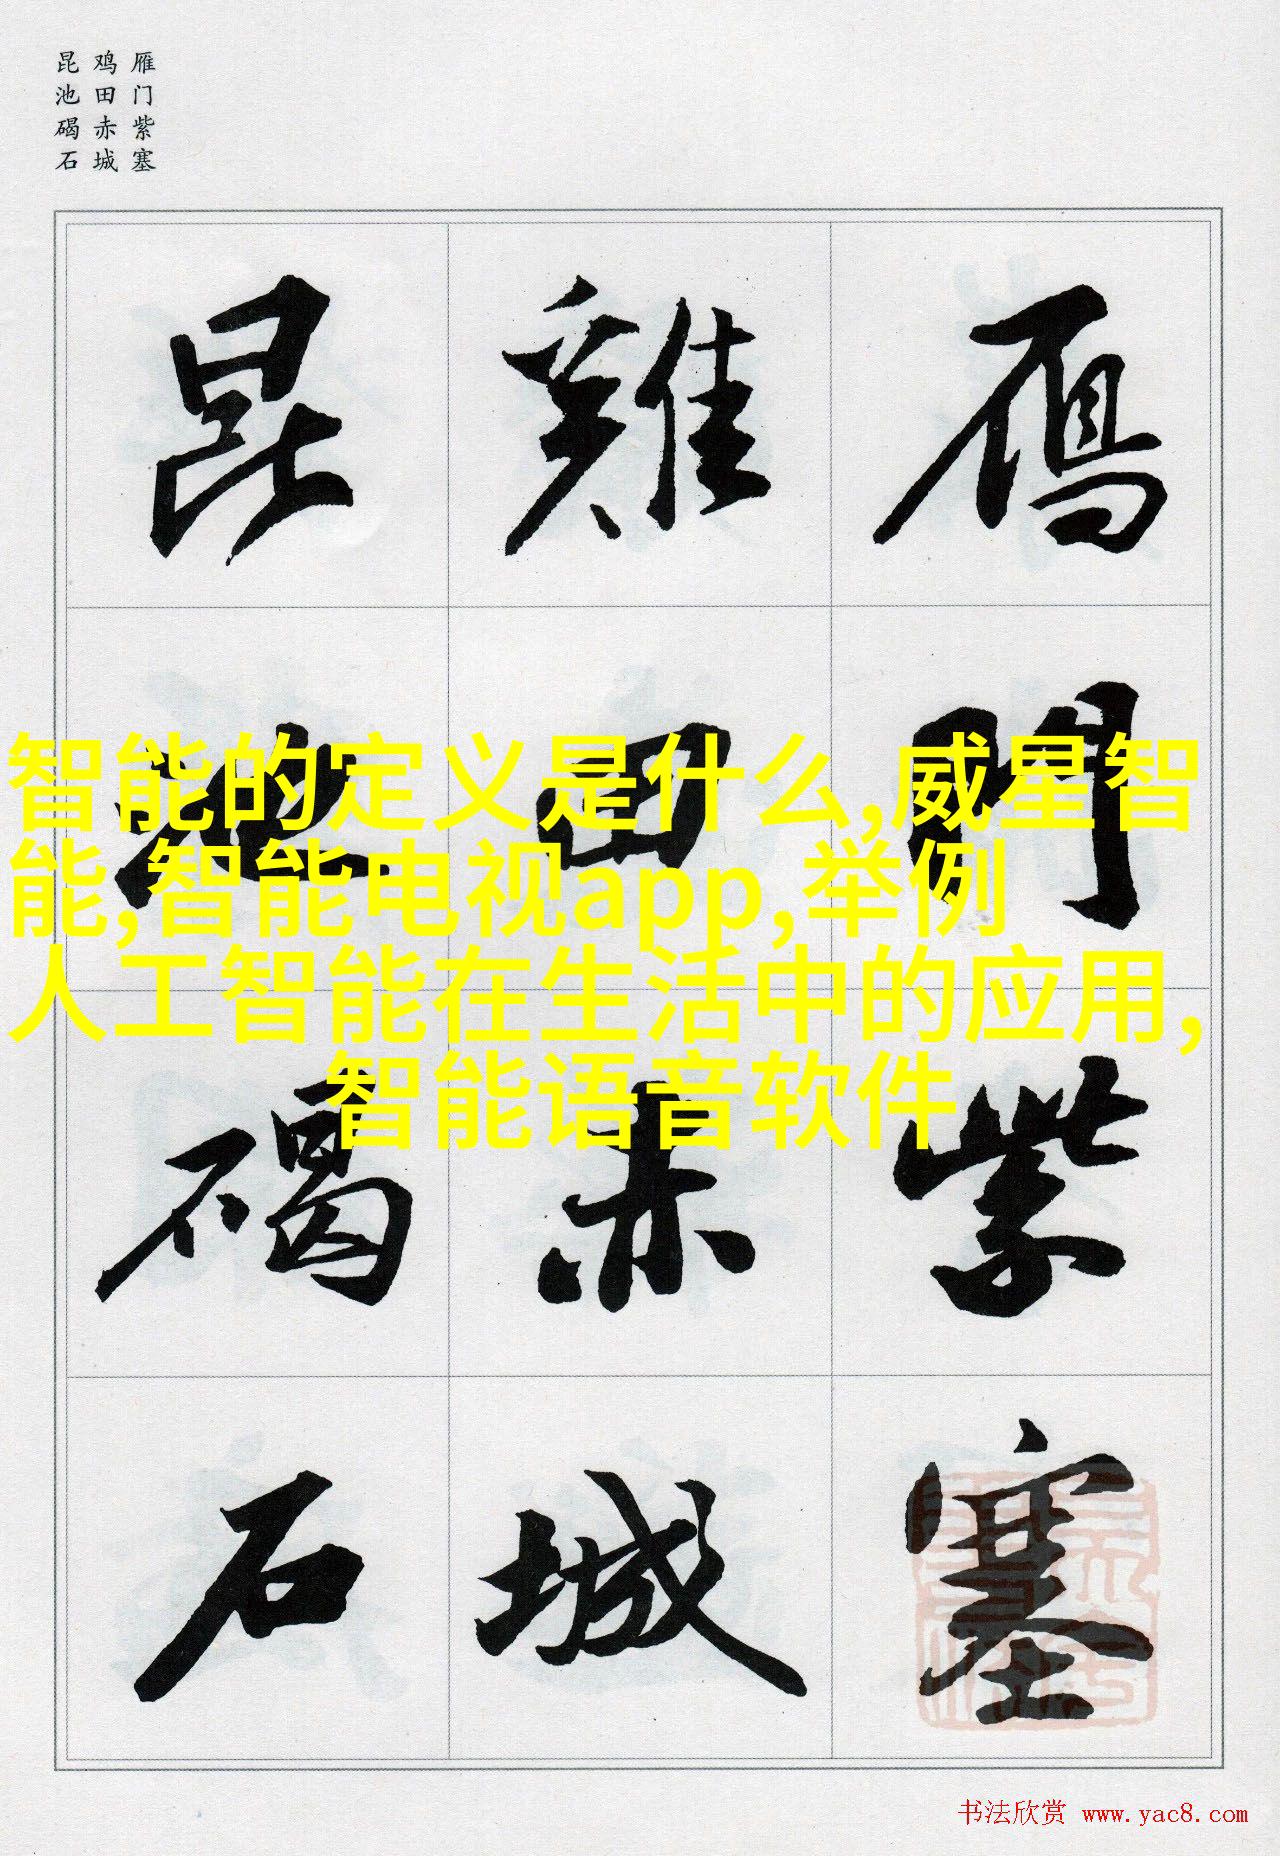 雁门紫塞
鸡田赤城
昆池碣石
雁門紫塞
雞田赤城
昆池碣石
智能的定义是什么,威星智
能,智能电视app,举例
人工智能在生活中的应用,
智能语音软件
书法欣赏 www.yac8.com